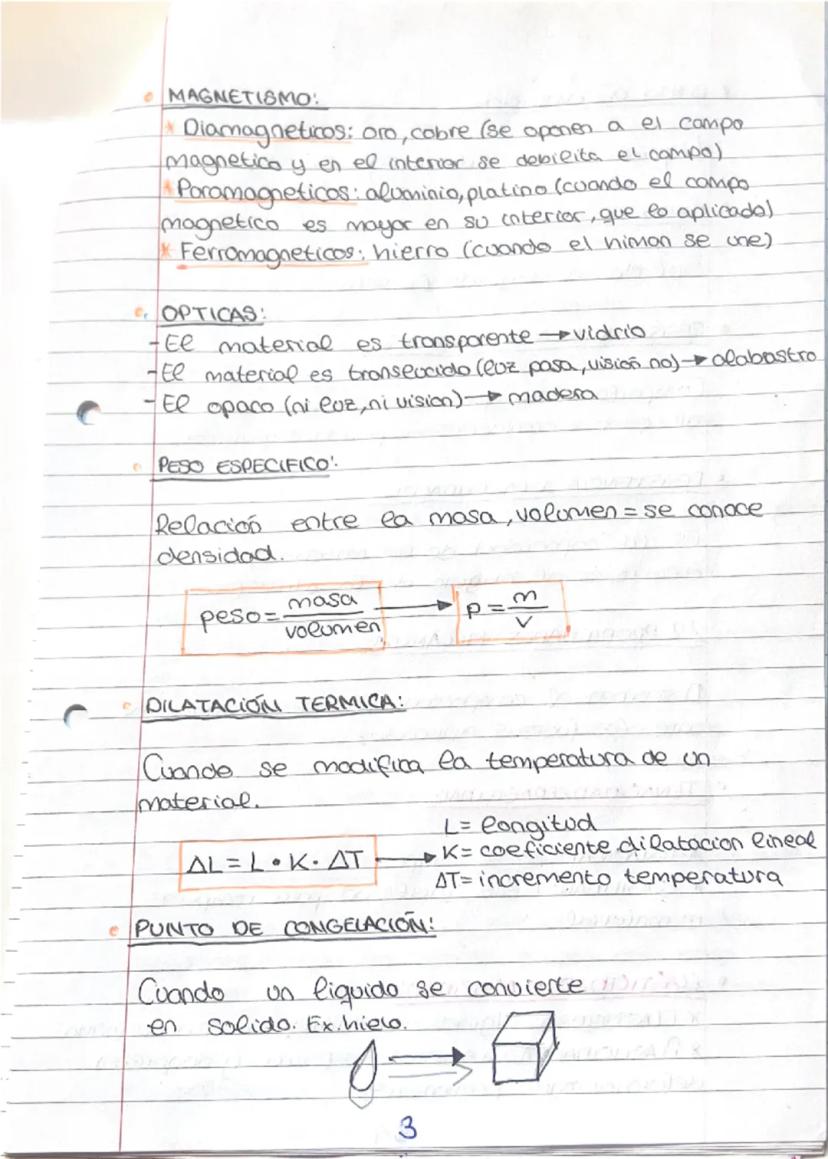 • MAGNETISMO:
* Diamagneticos: oro, cobre (se oponen a el campo
magnetico y en el interior se debilita el campo)
* Paramagneticos: aluminio, platino (cuando el campo
magnetico es mayor en su interior, que lo aplicado)
* Ferromagneticos: hierro (cuando el himan se une)
• OPTICAS:
- El material es transparente → vidrio
- El material es translucido (luz pasa, visión no) → alabastro
- El opaco (ni luz, ni vision) → madera
• PESO ESPECIFICO:
Relación entre la masa, volumen = se conoce
densidad.
peso = masa / volumen → P = m / v
• DILATACIÓN TERMICA:
Cuando se modifica la temperatura de un
material.
L = longitud
ΔL = L • K · ΔT → K = coeficiente dilatacion lineal
ΔT = incremento temperatura
• PUNTO DE CONGELACIÓN:
Cuando un liquido se convierte
en solido. Ex. hielo.
3